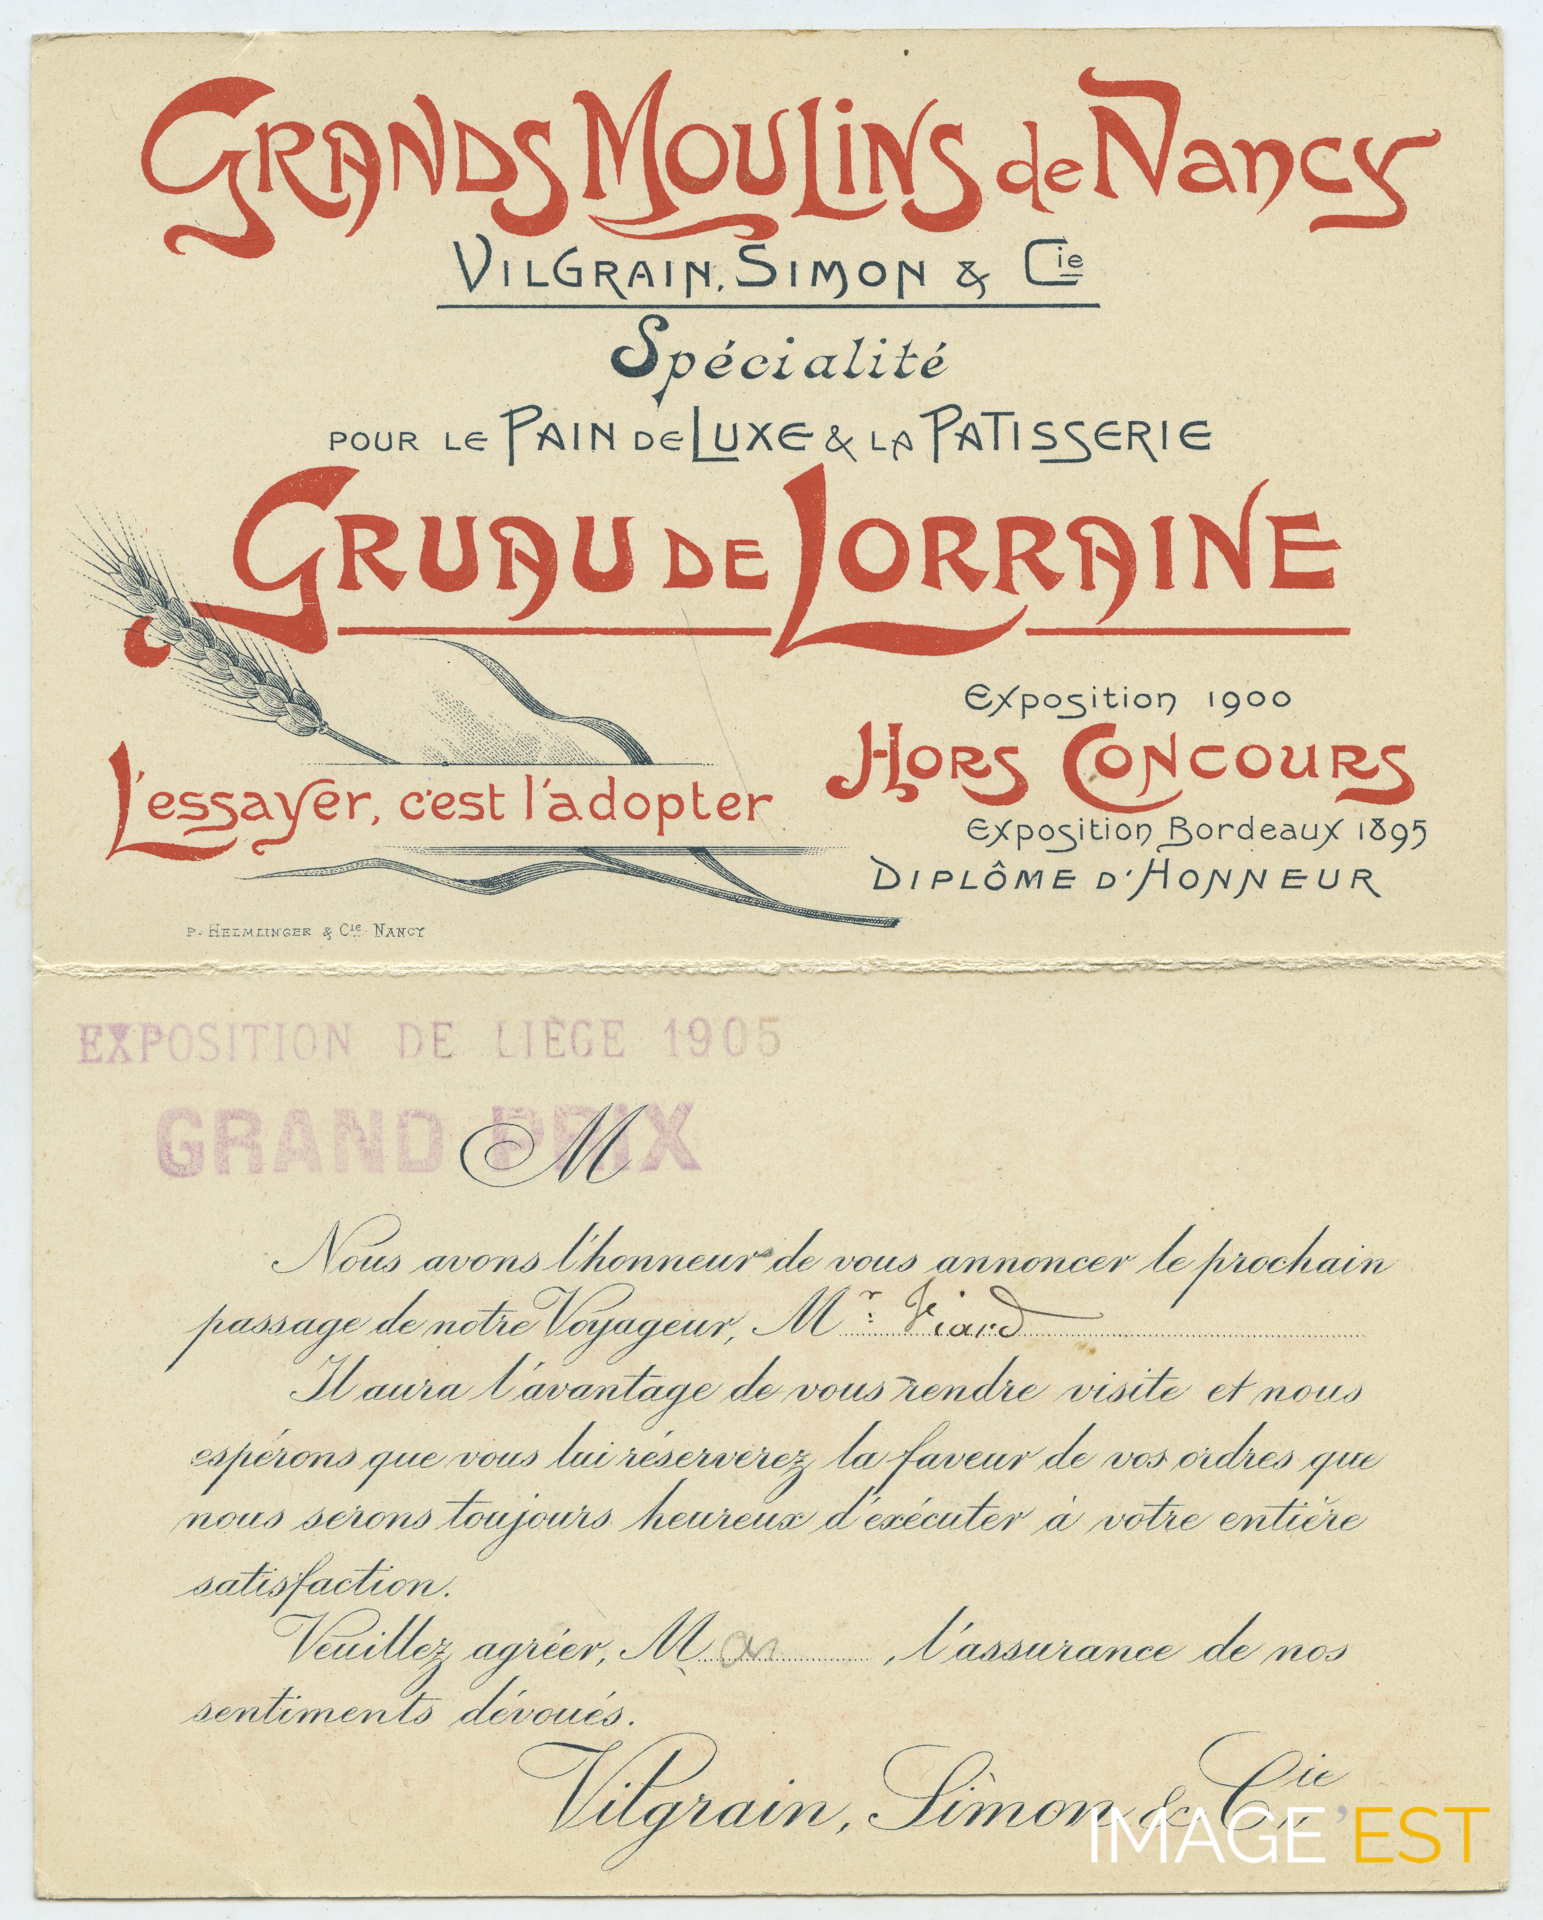 GRANDS MOULINS de NANCY
VILGRAIN, SIMON & Cie
Spécialité
POUR LE PAIN DE LUXE & LA PATISSERIE
GRUAU DE LORRAINE
Exposition 1900
HORS CONCOURS
L'essayer, c'est l'adopter
Exposition Bordeaux 1895
DIPLÔME D'HONNEUR
P. HELMLINGER & Cie NANCY
EXPOSITION DE LIÈGE 1905
GRAND PRIX
M
Nous avons l'honneur de vous annoncer le prochain
passage de notre Voyageur, Mr
Il aura l'avantage de vous rendre visite et nous
espérons que vous lui réserverez la faveur de vos ordres que
nous serons toujours heureux d'exécuter à votre entière
satisfaction.
Veuillez agréer, M , l'assurance de nos
sentiments dévoués.
Vilgrain, Simon & Cie
IMAGE'EST